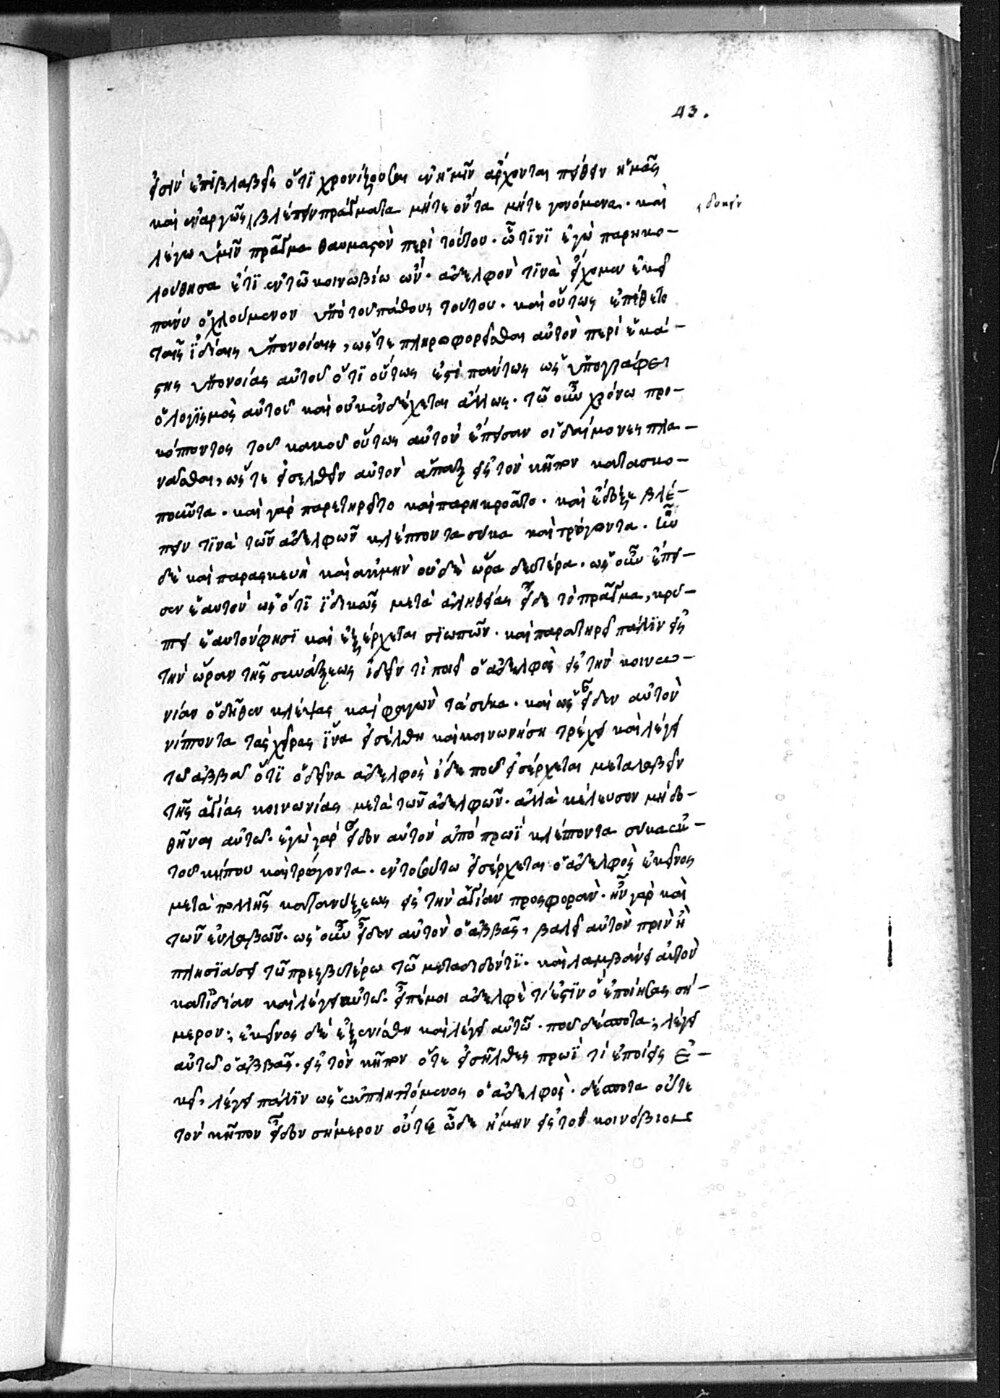 43.
εἰσὶν ἐπιβλαβεῖς ὅτι χρονίζουσαι ἐν ἡμῖν ἄρχονται πείθειν ἡμᾶς
καὶ ἐναργῶς βλέπειν πράγματα μήτε ὄντα μήτε γινόμενα. καὶ
δοκεῖν
λέγω ὑμῖν πρᾶγμα θαυμαστὸν περὶ τούτου. ᾧτινι ἐγὼ παρηκο-
λούθησα ἔτι ἐν τῶ κοινωβίω ὤν. ἀδελφὸν τινὰ εἴχομεν ἐκεῖ
πάνυ ὀχλούμενον ὑπὸ τοῦ πάθους τούτου. καὶ οὕτως ἐπείθετο
ταῖς ἰδίαις ὑπονοίαις, ὥστε πληροφορεῖσθαι αὐτὸν περὶ ἑκά-
στης ὑπονοίας αὐτοῦ ὅτι οὕτως ἐστὶ πάντως ὡς ὑπογράφει
ὁ λογισμὸς αὐτοῦ καὶ οὐκ ἐνδέχεται ἄλλως. τῶ οὖν χρόνω προ-
κόπτοντος τοῦ κακοῦ οὕτως αὐτὸν ἐποίησαν οἱ δαίμονες πλα-
νᾶσθαι, ὥστε εἰσελθεῖν αὐτὸν ἅπαξ εἰς τὸν κῆπον κατασκο-
ποῦντα. καὶ γὰρ παρετηρεῖτο καὶ παρηκροᾶτο. καὶ ἔδοξε βλέ-
πειν τινὰ τῶν ἀδελφῶν κλέπτοντα σῦκα καὶ τρώγοντα. ἦν
δὲ καὶ παρασκευὴ καὶ ἀκμὴν οὐδὲ ὥρα δευτέρα. ὡς οὖν ἔπει-
σεν ἑαυτὸν ὡς ὅτι ἰδικῶς μετὰ ἀληθείας εἶδε τὸ πρᾶγμα, κρύ-
πτει ἑαυτὸν φησὶ καὶ ἐξέρχεται σιωπῶν. καὶ παρατηρεῖ πάλιν εἰς
τὴν ὥραν τῆς συνάξεως ἰδεῖν τί ποιεῖ ὁ ἀδελφὸς εἰς τὴν κοινω-
νίαν ὁ δῆθεν κλέψας καὶ φαγὼν τὰ σῦκα. καὶ ὡς εἶδεν αὐτὸν
νίπτοντα τὰς χεῖρας ἵνα εἰσέλθη καὶ κοινωνήση τρέχει καὶ λέγει
τῶ ἀββᾶ ὅτι ὁ δεῖνα ἀδελφὸς ἴδε ποῦ εἰσέρχεται μεταλαβεῖν
τῆς ἁγίας κοινωνίας μετὰ τῶν ἀδελφῶν. ἀλλὰ κέλευσον μὴ δο-
θῆναι αὐτῶ. ἐγὼ γὰρ εἶδον αὐτὸν ἀπὸ πρωῒ κλέπτοντα σῦκα ἐκ
τοῦ κήπου καὶ τρώγοντα. ἐν τοσούτω εἰσέρχεται ὁ ἀδελφὸς ἐκεῖνος
μετὰ πολλῆς κατανύξεως εἰς τὴν ἁγίαν προσφοράν. ἦν γὰρ καὶ
τῶν εὐλαβῶν. ὡς οὖν εἶδεν αὐτὸν ὁ ἀββᾶς, βάλει αὐτὸν πρὶν ἢ
πλησιάσει τῶ πρεσβυτέρω τῶ μεταδιδόντι. καὶ λαμβάνει αὐτὸν
κατιδίαν καὶ λέγει αὐτῶ. εἰπέ μοι ἀδελφὲ τί ἐστιν ὃ ἐποίησας σή-
μερον; ἐκεῖνος δὲ ἐξενίσθη καὶ λέγει αὐτῶ. ποῦ δέσποτα; λέγει
αὐτῶ ὁ ἀββᾶς. εἰς τὸν κῆπον ὅτε εἰσῆλθες πρωῒ τί ἐποίεις ἐ-
κεῖ. λέγει πάλιν ὡς ἐκπληττόμενος ὁ ἀδελφὸς. δέσποτα οὔτε
τὸν κῆπον εἶδον σήμερον οὔτε ὧδε ἤμην εἰς τὸ κοινόβιον